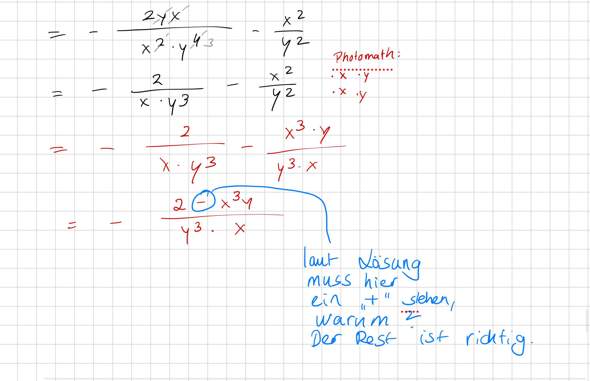 = - 2yx / x² · y⁴ 3 - x² / y²
= - 2 / x · y³ - x² / y²
Photomath:
· x · y
· x · y
= - 2 / x · y³ - x³ · y / y³ · x
= - 2 - x³y / y³ · x
laut Lösung
muss hier
ein „+" stehen,
warum ?
Der Rest ist richtig.